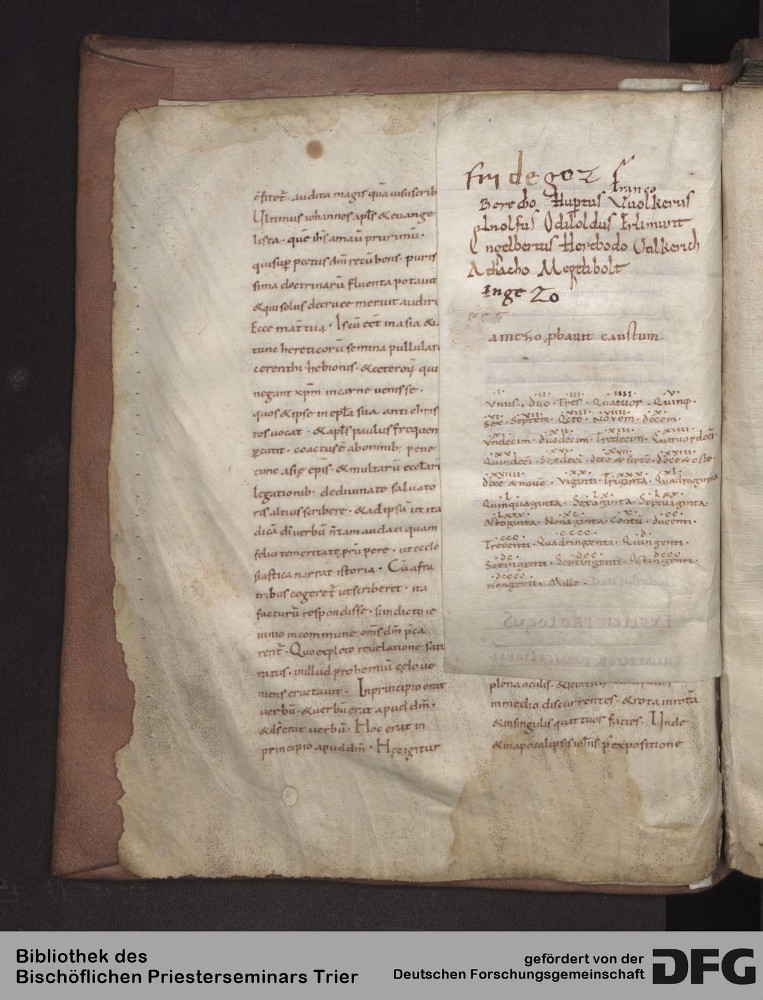 c̄fitet̄ · audita magis quā uisi scrib
Ultimus iohannes apl̄s & euange
lista · quē ih̄s amauit
qui sup pectus dn̄i recūbens · puris
sima doctrinarū fluenta potauit
& qui solus de cruce meruit audiri
Ecce mat̄ tua · Is cū eēt in asia & 
tunc hereticorū semina pullular
cerenthi · hebionis · & ceterorū qui
negant xp̄m in carne uenisse ·
quos & ipse in ep̄la sua · anti chris
tos uocat · & apl̄s paulus frequen
pcutit · coactus ē ab omnib; pene
tunc asie ep̄is · & multarū eccl̄ari
legationib; de diuinate saluato
ris altius scribere · & ad ipsū ut ita
dicā dī uerbū n̄ tam audaci quam
felici temeritate prūpere · ut eccle
siastica narrat istoria · Cū a fra
tribus coger& ut scriberet · ita
facturū respondisse · si indicto ie
iunio in commune om̄s dm̄ p̄ca
rent̄ · Quo expleto reuelatione satu
ratus · in illud prohemiū celo ue
niens eructauit · In principio erat
uerbū · & uerbū erat apud dm̄ ·
& ds̄ erat uerbū · Hoc erat in
principio apud dm̄ · Hec igitur
fri de goz
franco
Berecho Huptus Vuolkerus
Arnolfus Odiloldus Erlinuurt
Engelbertus Herebodo Uulkerich
Adtacho Megthbolt
Inge Zo
amicho pbauit caustum
· I · · II · · III · · IIII · · V ·
Unus · duo · Tres · Quatuor · Quinq ·
· VI · · VII · · VIII · · VIIII · · X ·
Sex · Septem · Octo · Novem · decem ·
· XI · · XII · · XIII · · XIIII ·
Undecim · duodecim · Tredecim · Quatuordeci
· XV · · XVI · · XVII · · XVIII ·
Quindeci · Sexdeci · dece & septe · dece & octo ·
· XVIIII · · XX · · XXX · · XL ·
Dece & nove · Viginti · Triginta · Quadraginta
· L · · LX · · LXX ·
Quinquaginta · Sexaginta · Septuaginta ·
· LXXX · · XC · · C · · CC ·
Octoginta · Nonaginta · Centū · ducenti ·
· CCC · · CCCC · · D ·
Trecenti · Quadringenti · Quingenti ·
· DC · · DCC · · DCCC ·
Sexingenti · Septingenti · Octingenti ·
· DCCCC ·
Nongenti · Mille ·
plena oculis ·
in medio discurrentes · & rota in rota
& in singulis quattuor facies · Unde
& in apocalipsis ioh̄is p expositione
Bibliothek des
Bischöflichen Priesterseminars Trier
gefördert von der
Deutschen Forschungsgemeinschaft
DFG